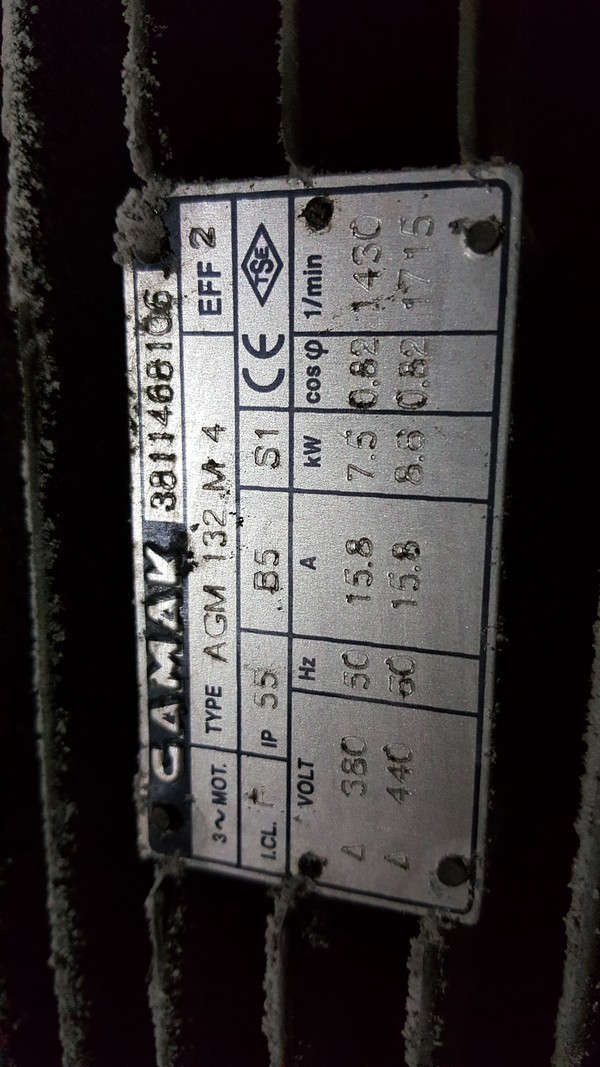 GAMAK 3811468106
3~MOT. TYPE AGM 132 M 4 EFF 2
I.CL. F IP 55 B5 S1 CE TSE
VOLT Hz A kW cos φ 1/min
Δ 380 50 15.8 7.5 0.82 1430
Δ 440 60 15.8 8.6 0.82 1715